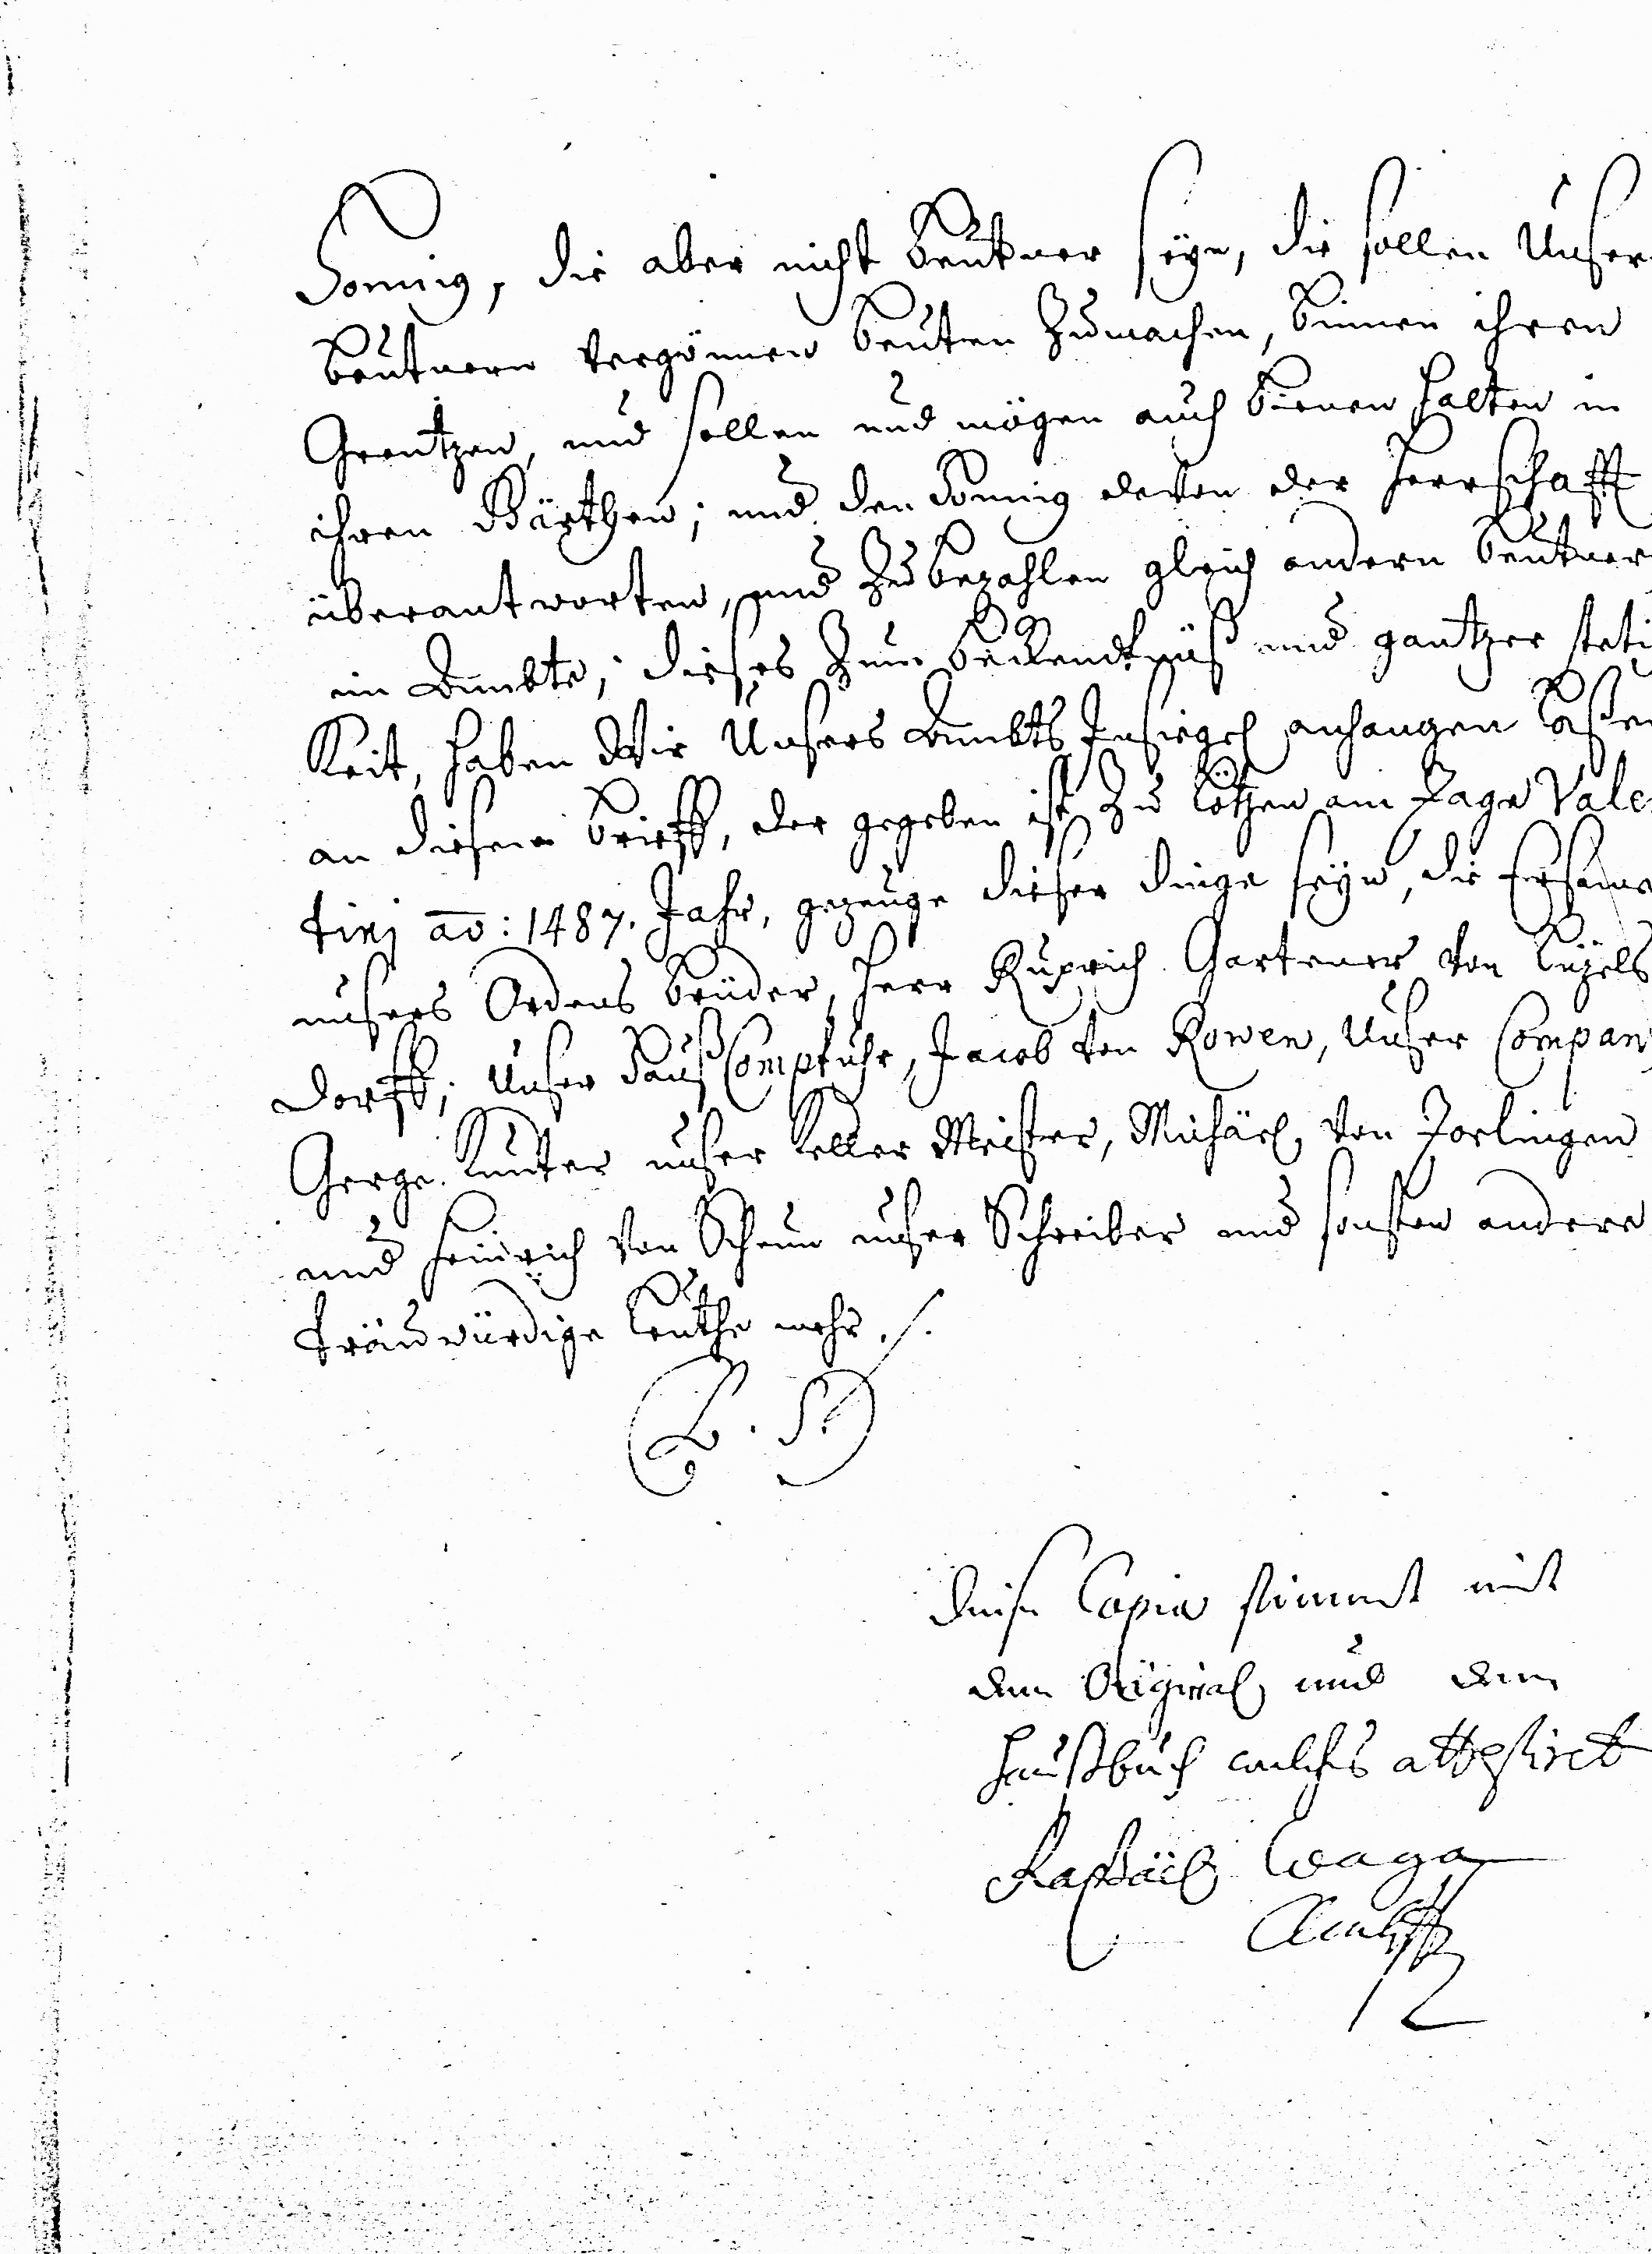 Honnig, die aber nicht beutner seyn, die sollen Unser
beutnern vergönnen beuten Zumachen, binnen ihren
Grentzen, und sollen und mögen auch bienen halten in
ihren Gärthen; und den Honnig davon der Herrschafft
überantworten, und Zubezahlen gleich andern beutner
im Ambte; dieses Zum bekendtnüß und gantzer steti
Keit, haben Wir Unsers Ambts Insiegel anhangen laßen
an diesem brieff, der gegeben ist Zu Lötzen am Tage Valen
tini ao: 1487. Jahr, gezeuge dieser dinge seyn, die Ersame
unsers Ordens brüder, Herr Ruprich Gartener von
dorff; Unser Hauß Compthuhr, Jacob von Rowen, Unser Compan
Gerge Kunter unser Keller Meister, Michäel von Jorlingen
und Heinrich von Schenn unser Schreiber und sonsten andere
träuwürdige Leuthe mehr ./.
L. S.
Diese Copia stimmet mit
dem Original und dem
Haußbuch welches attestiret
Raphäel Waga